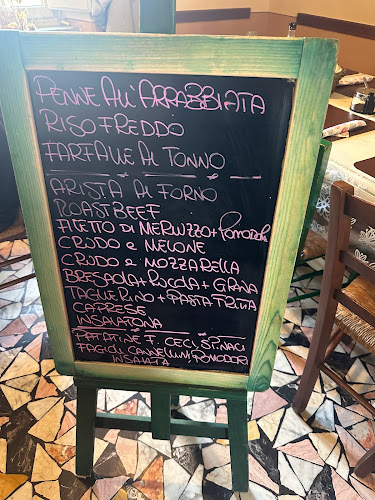 PENNE ALL'ARRABBIATA
RISO FREDDO
FARFALLE AL TONNO
ARISTA AL FORNO
ROASTBEEF
FILETTO DI MERLUZZO + POMODORI
CRUDO e MELONE
CRUDO e MOZZARELLA
BRESAOLA + RUCOLA + GRANA
TAGLIERINO + PASTA FRITTA
CAPRESE
INSALATONA
PATATINE F. CECI, SPINACI
FAGIOLI CANNELLINI, POMODORI
INSALATA